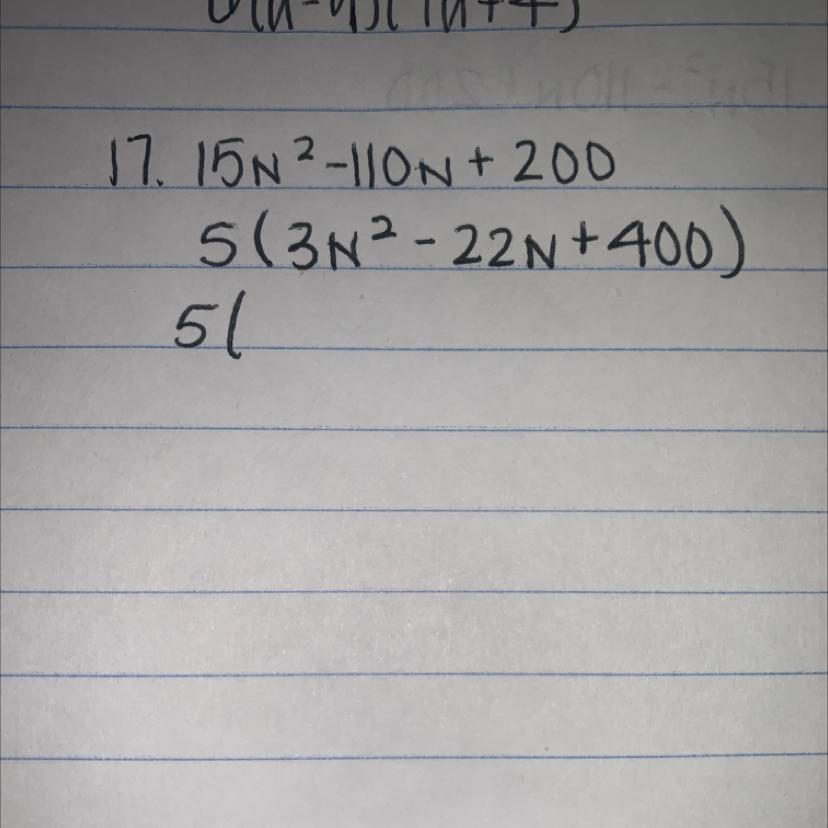 17. 15N² -110N + 200
5(3N² - 22N + 400)
5(